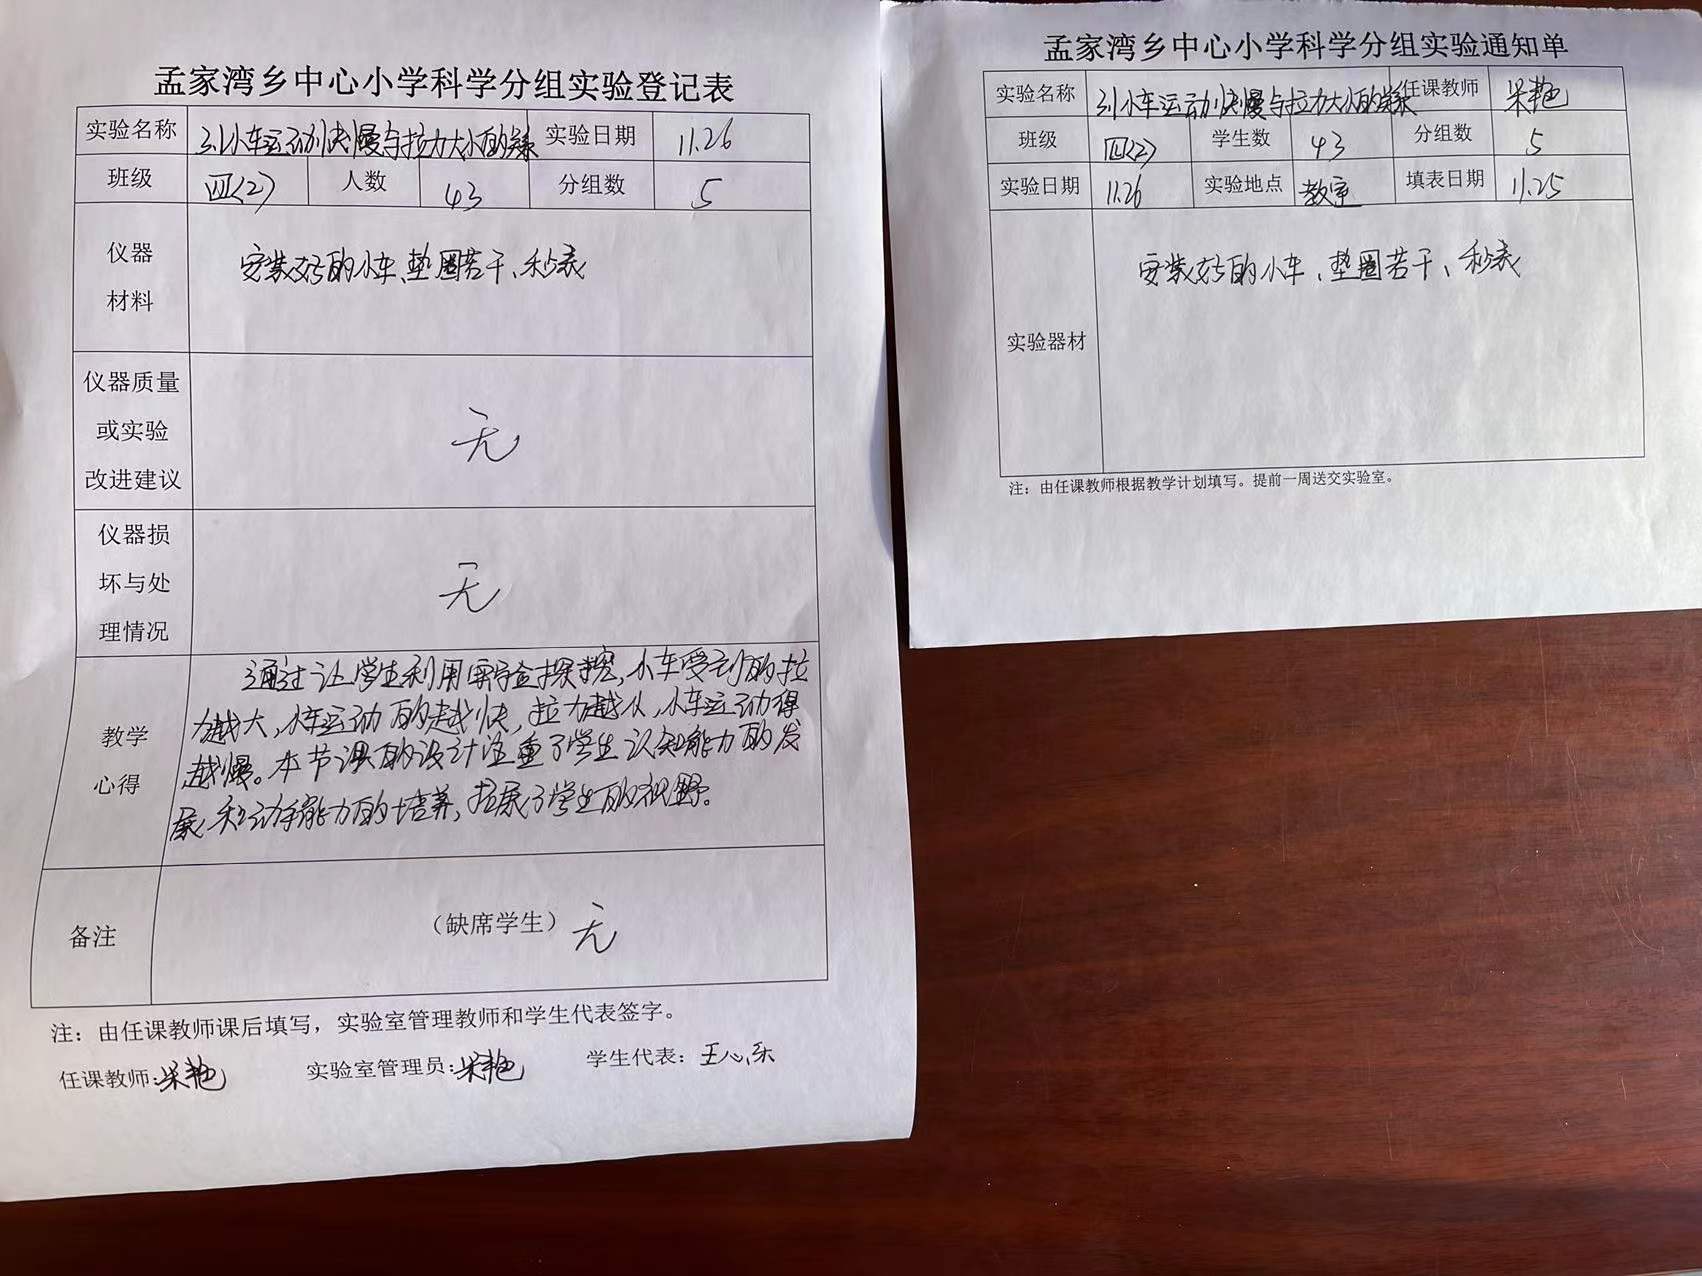 孟家湾乡中心小学科学分组实验登记表
实验名称 3.1小车运动快慢与拉力大小的关系 实验日期 11.26
班级 四(2) 人数 43 分组数 5
仪器
材料
安装好的小车、垫圈若干、秒表
仪器质量
或实验
改进建议
无
仪器损
坏与处
理情况
无
教学
心得
通过让学生利用实验探究,小车受到的拉
力越大,小车运动的越快,拉力越小,小车运动得
越慢。本节课的设计注重了学生认知能力的发
展和动手能力的培养,拓展了学生的视野。
备注
(缺席学生) 无
注:由任课教师课后填写,实验室管理教师和学生代表签字。
任课教师: 艳 实验室管理员: 艳 学生代表:王心乐
孟家湾乡中心小学科学分组实验通知单
实验名称 3.1小车运动快慢与拉力大小的关系 任课教师 艳
班级 四(2) 学生数 43 分组数 5
实验日期 11.26 实验地点 教室 填表日期 11.25
实验器材
安装好的小车、垫圈若干、秒表
注:由任课教师根据教学计划填写。提前一周送交实验室。